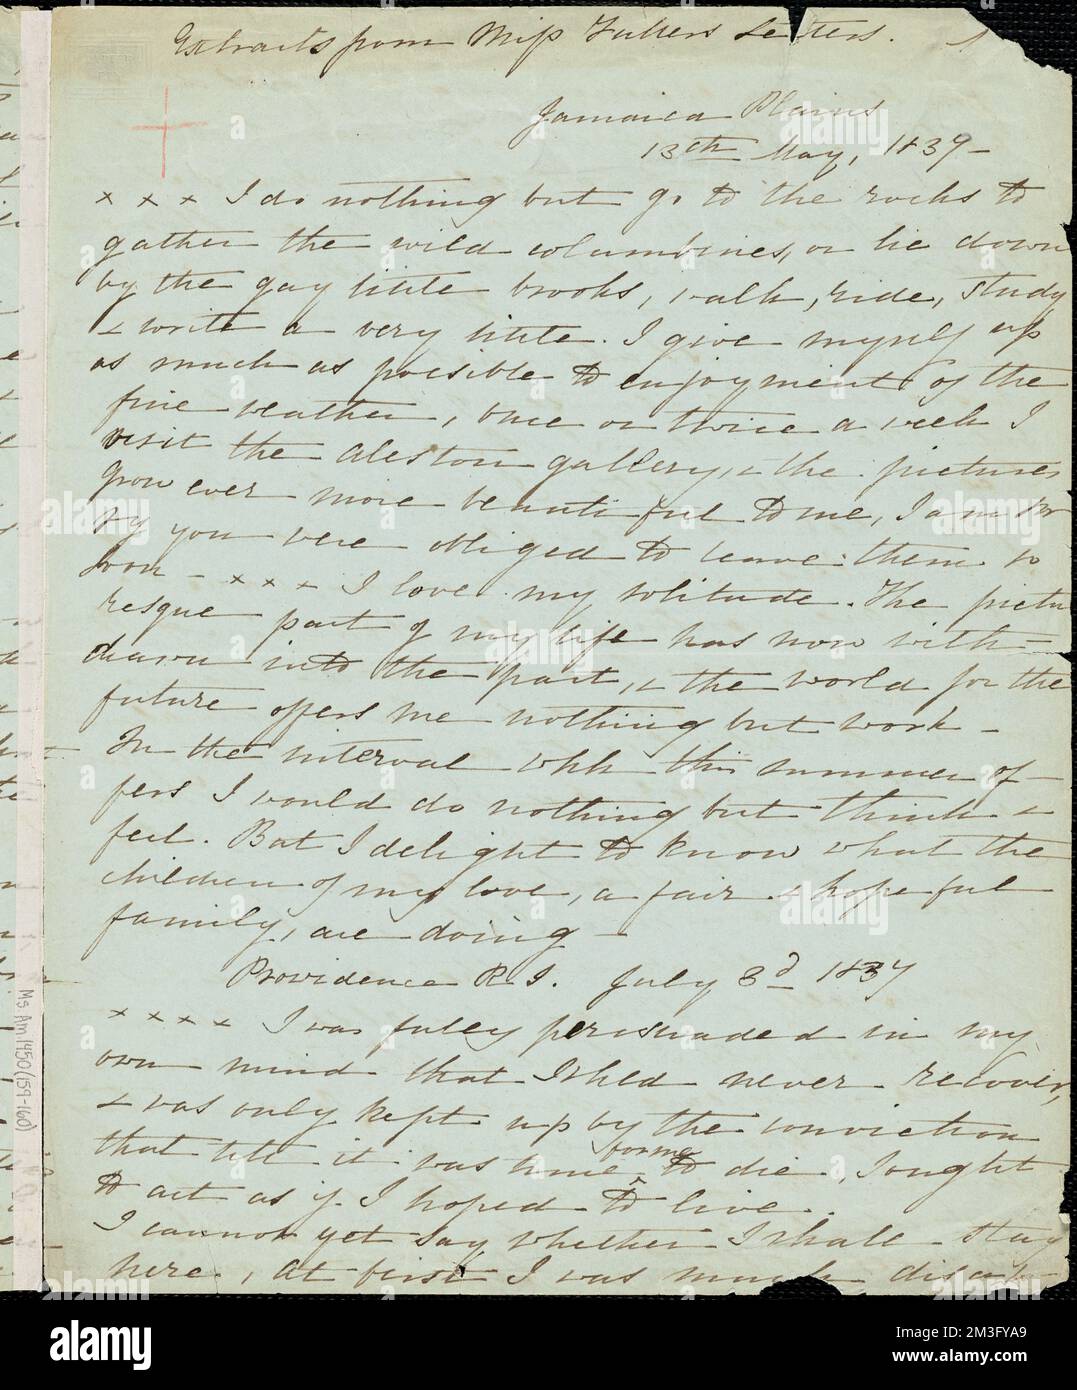 Extracts from Miss Fullers Letters. 1
Jamaica Plains
13th May, 1839 -
x x x I do nothing but go to the rocks to
gather the wild columbines, or lie down
by the gay little brooks, walk, ride, study
& write a very little. I give myself up
as much as possible to enjoyment of the
fine weather, once or twice a week I
visit the Alston gallery, & the pictures
grow ever more beautiful to me, I am sor
ry you were obliged to leave them so
soon - x x x I love my solitude. The pictu
resque part of my life has now with-
drawn into the past, & the world for the
future offers me nothing but work -
In the interval whh this summer of-
fers I would do nothing but think &
feel. But I delight to know what the
children of my love, a fair & hopeful
family, are doing -
Providence R. I. July 3d 1837
x x x x I was fully persuaded in my
own mind that I shld never recover,
& was only kept up by the conviction
that till it was time for me to die, I ought
to act as if I hoped to live.
I cannot yet say whether I shall stay
here, At first I was much disap-
Ms Am.1450(159-160)
alamy
Image ID: 2M3FYA9
www.alamy.com